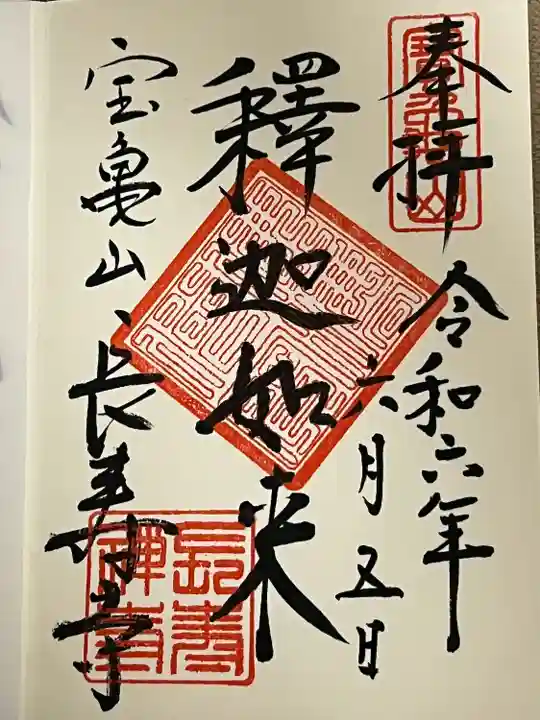 奉拝
令和六年
六月五日
釋迦如来
宝亀山長寿寺
寶龜山
長壽禅寺